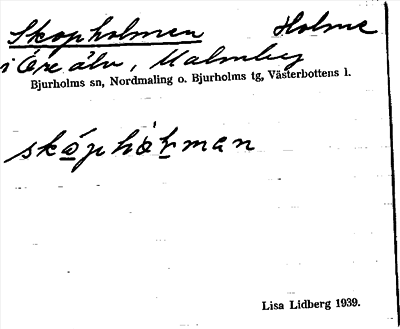 Skopholmen Holme
i Öre älv, Malmberg
Bjurholms sn, Nordmaling o. Bjurholms tg, Västerbottens l.
Lisa Lidberg 1939.